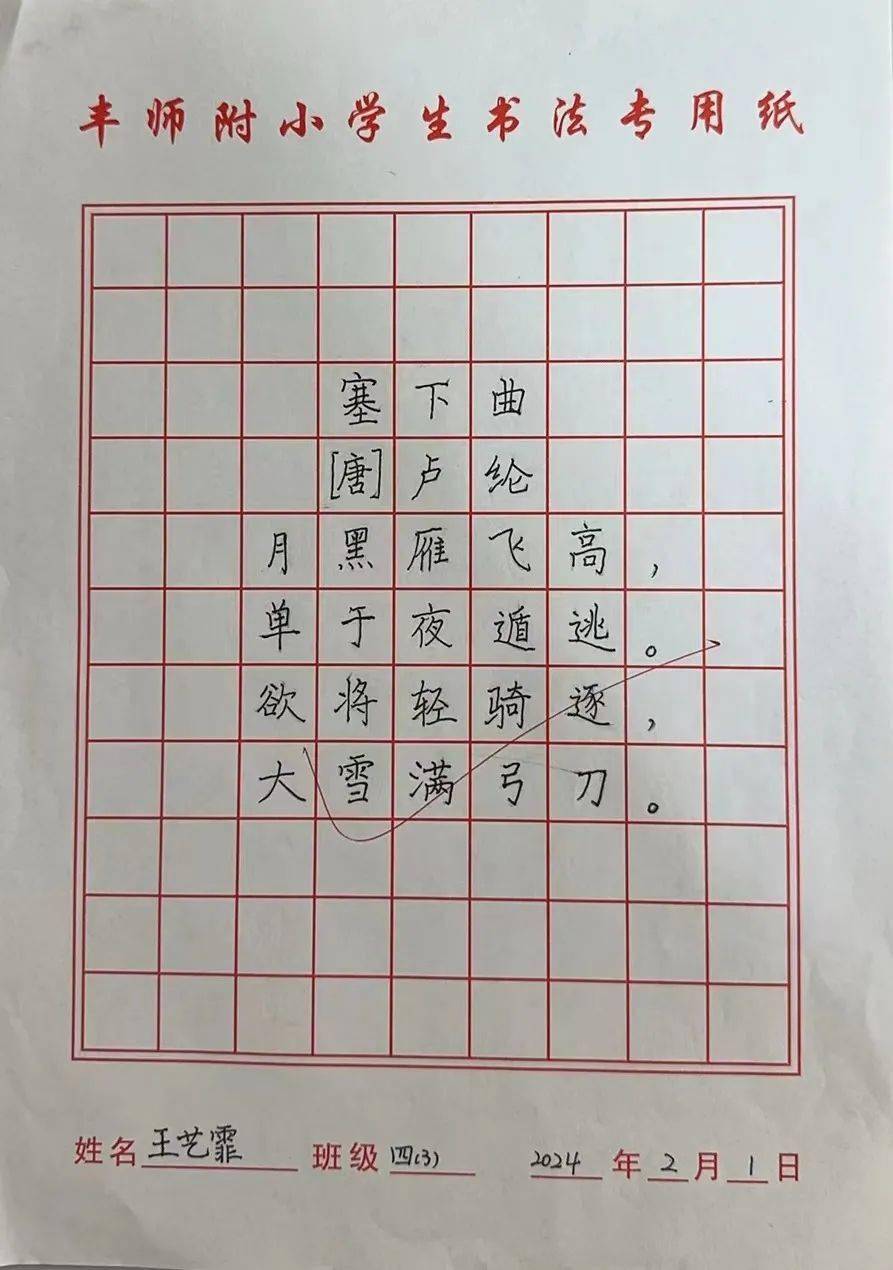 丰师附小学生书法专用纸
塞下曲
[唐]卢纶
月黑雁飞高，
单于夜遁逃。
欲将轻骑逐，
大雪满弓刀。
姓名王艺霏 班级四(3) 2024年2月1日